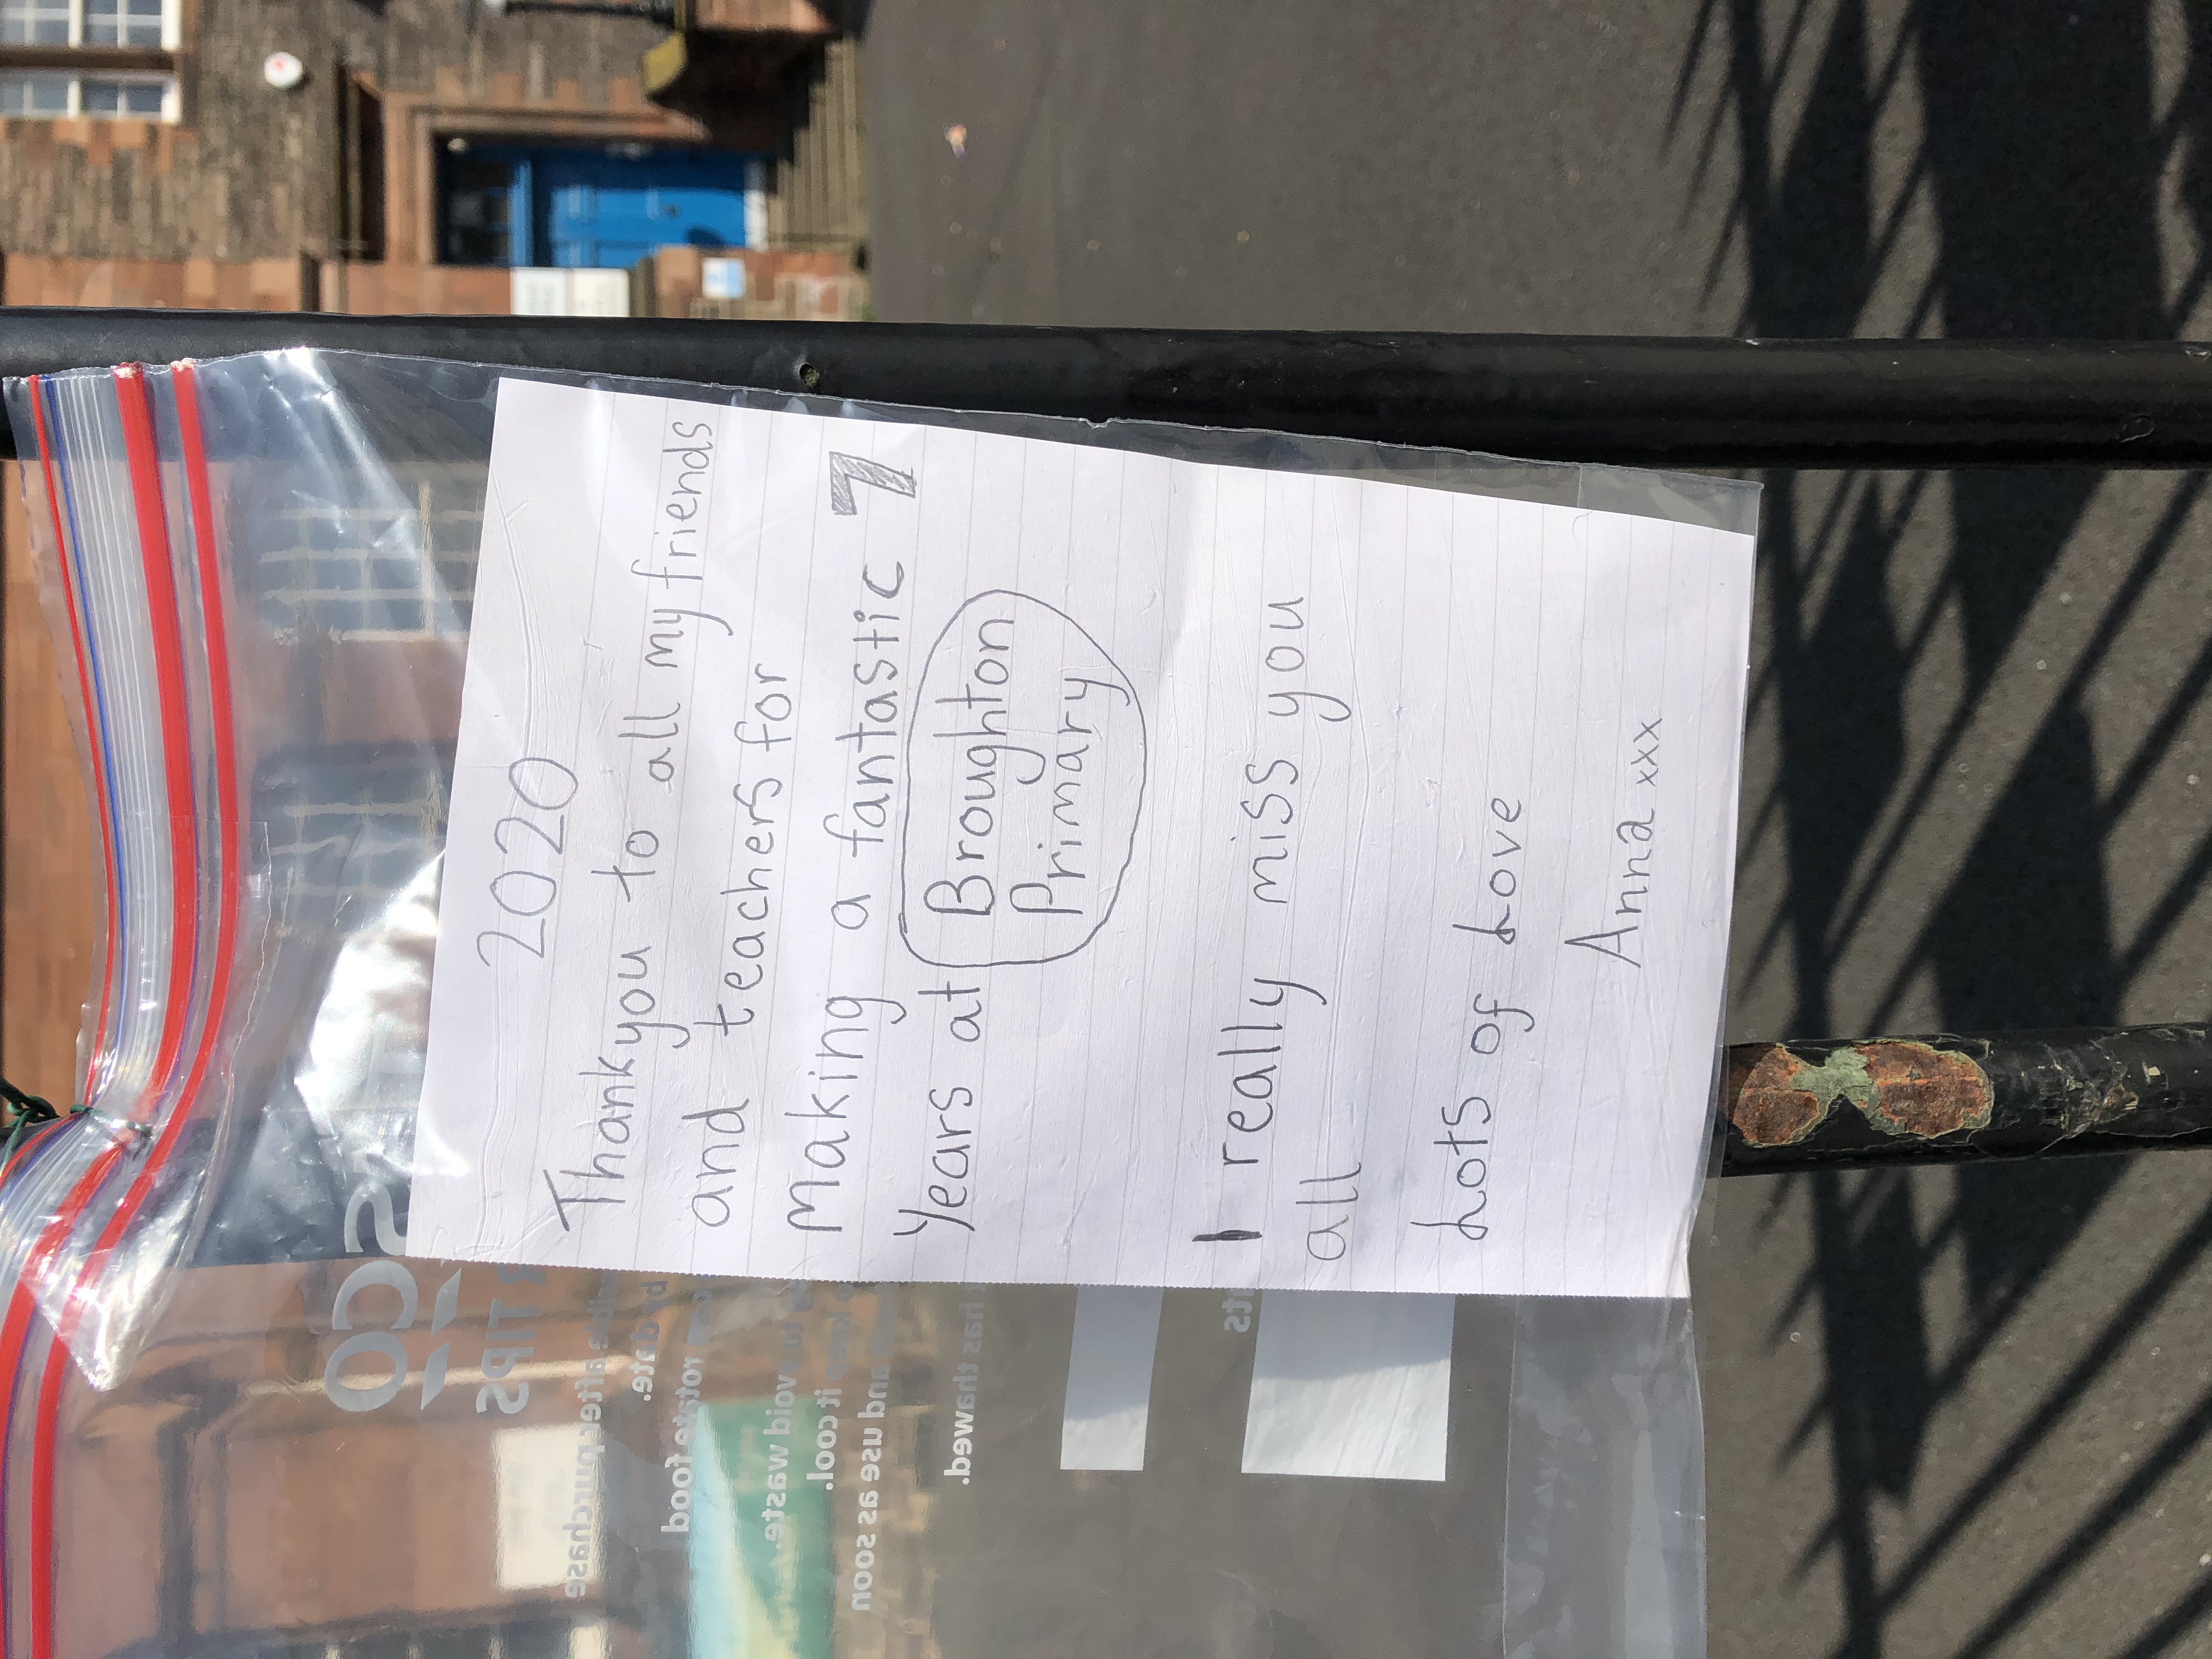 2020
Thankyou to all my friends
and teachers for
making a fantastic 7
Years at Broughton
Primary
I really miss you
all
Lots of Love
Anna xxx
SCO
TIPS
after purchase
by date.
rotate food
void waste
it cool.
and use as soon
has thawed.